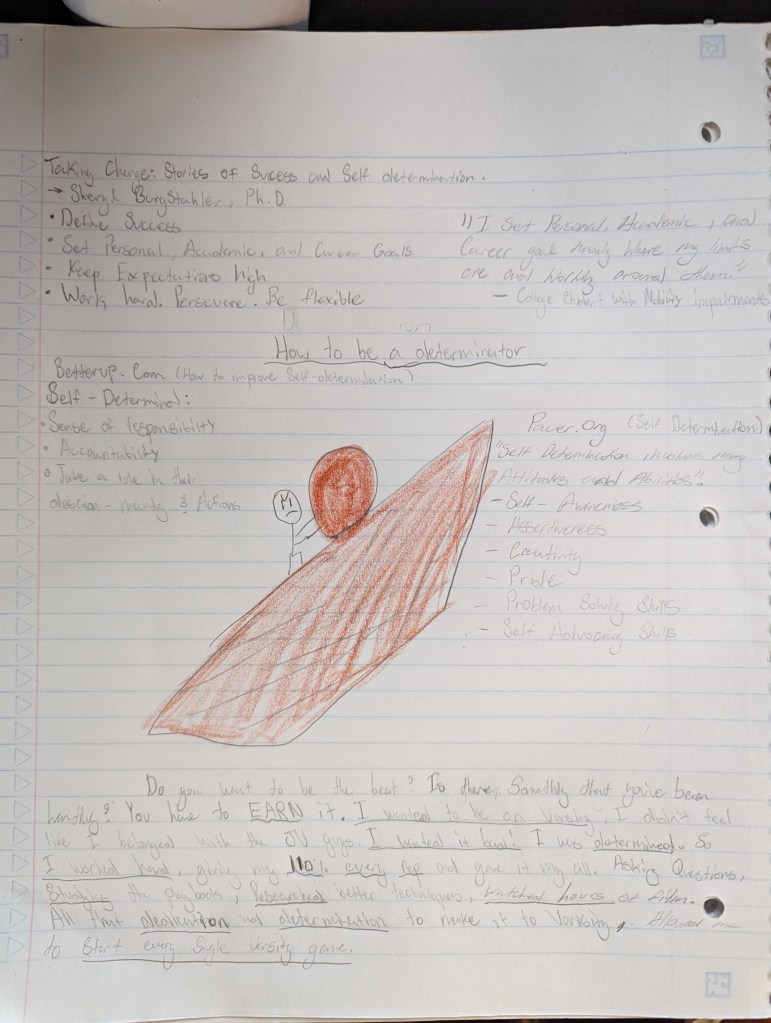 Taking Charge: Stories of Success and Self determination.
→ Sheryl BurgStahler, Ph.D
• Define Success
• Set Personal, Academic, and Career Goals
- Keep Expectations high
• Work hard. Persevere. Be flexible
"I Set Personal, Academic, and
Career goals Knowing Where my limits
are and Working around them"
- College Student With Mobility impairments
How to be a determinator.
Betterup.Com (How to improve Self-determination)
Self-Determined:
• Sense of responsibility
• Accountability
• Take a role in their
descion-making & Actions
Pacer.Org (Self Determination)
"Self Determination involves many
Attitudes and Abilities".
- Self-Awareness
- Assertiveness
- Creativity
- Pride
- Problem Solving Skills
- Self Advocacy Skills
Do you want to be the best? Is there Something that you've been
You have to EARN it. I wanted to be on Varsity. I didn't feel
like I belonged with the JV guys. I wanted it bad! I was determined. So
I worked hard, giving my 110% every rep and gave it my all. Asking Questions,
Studying the playbook, Researched better techniques, Watched hours of film.
All that dedication and determination to make it to Varsity, Allowed me
to Start every Single Varsity game.